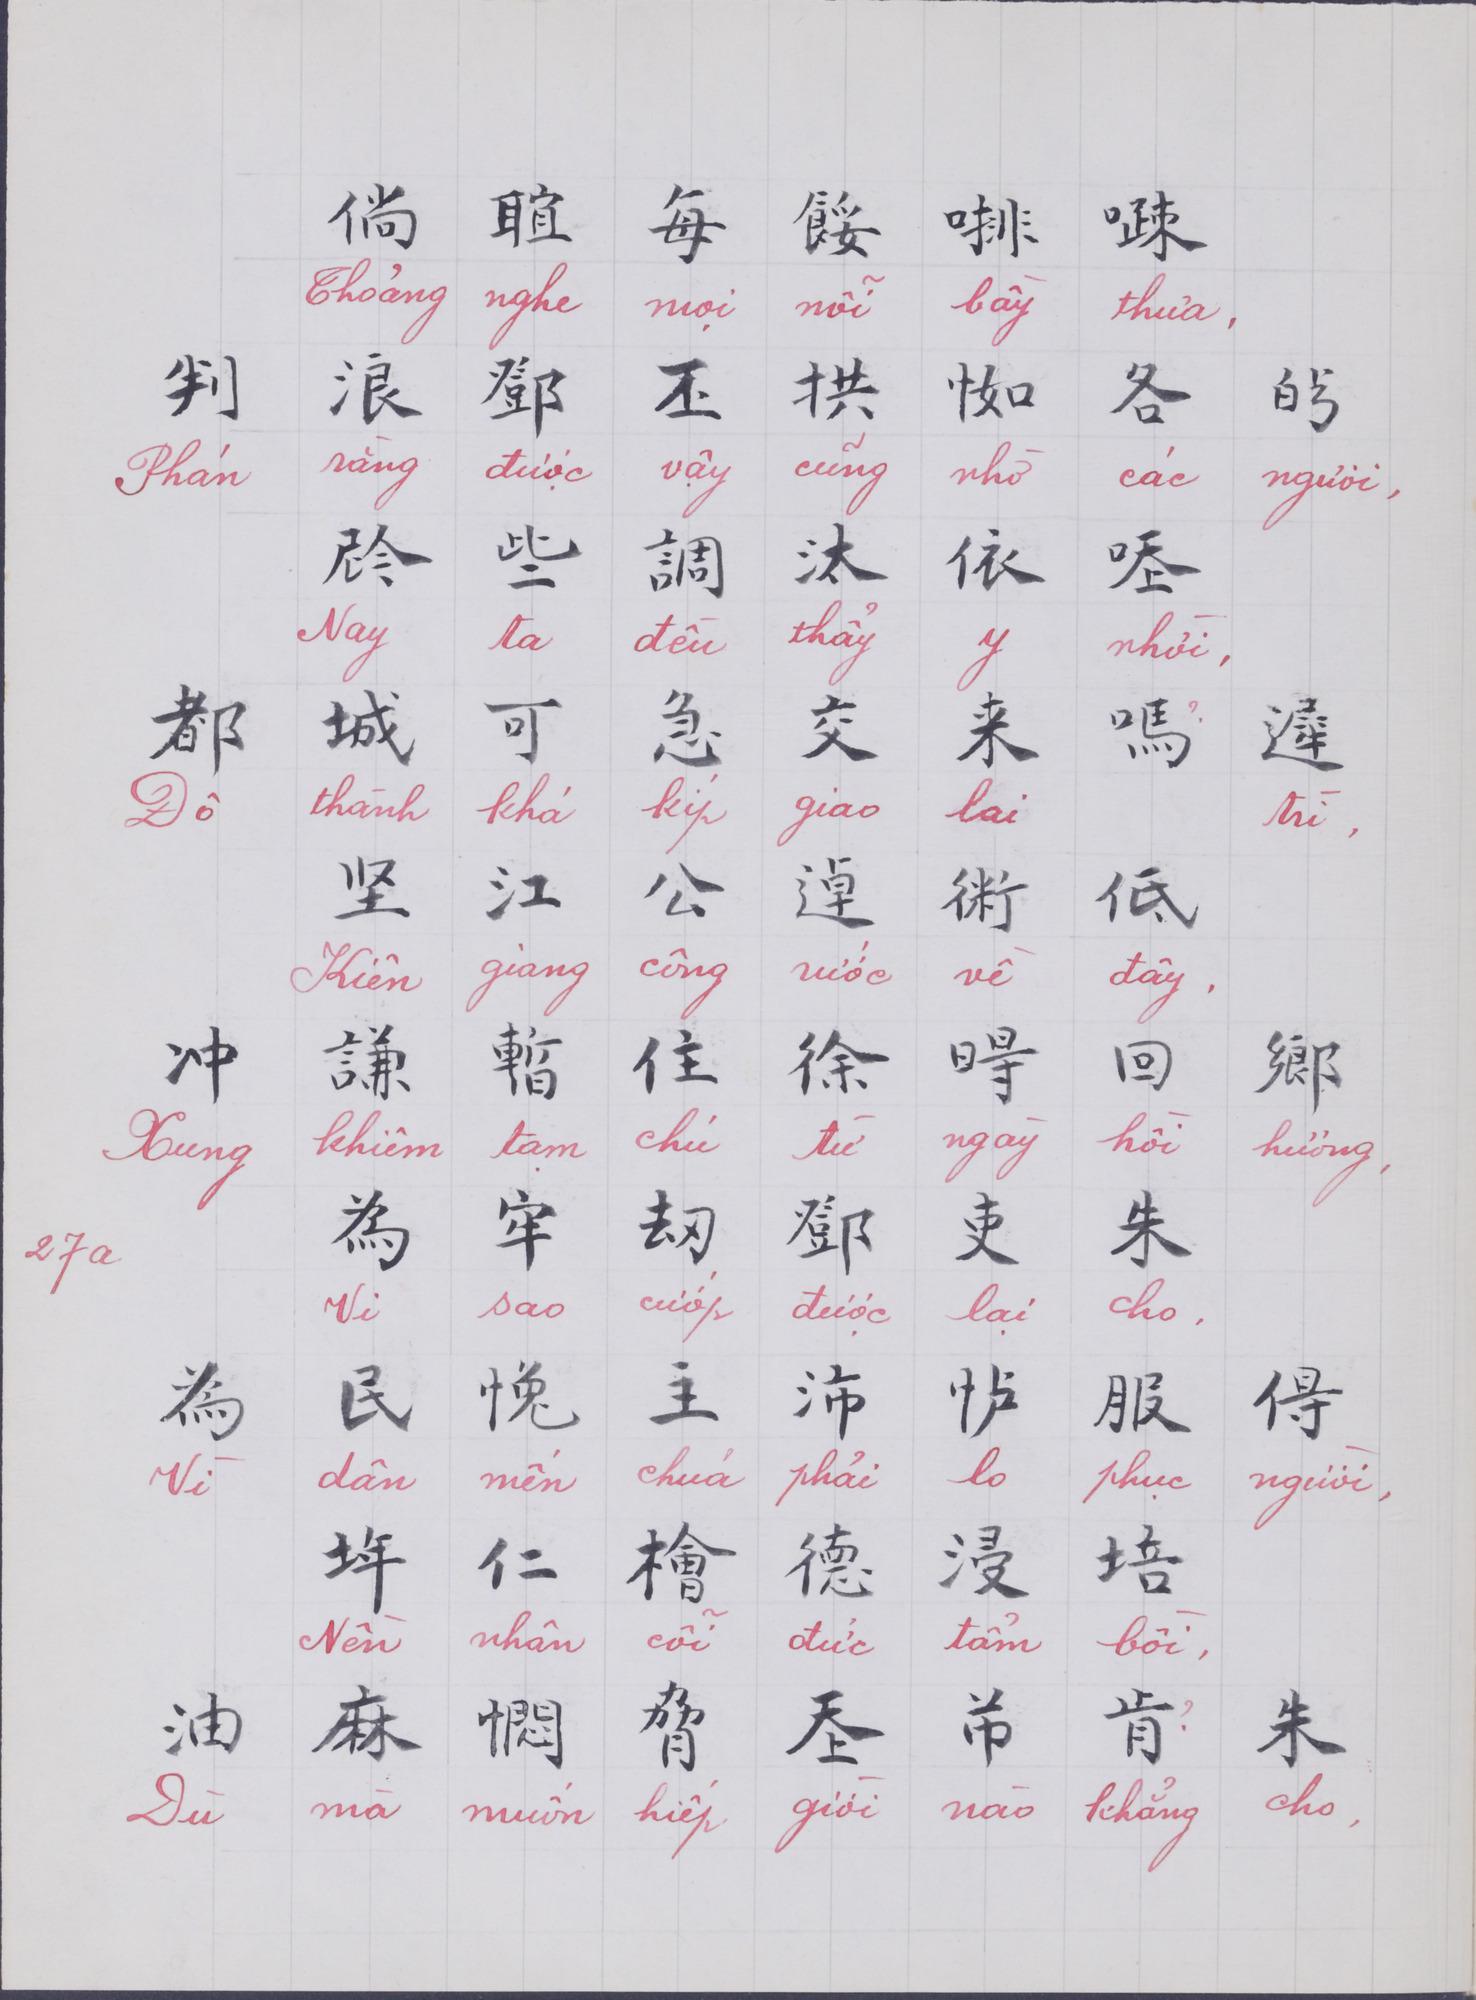 倘 䀏 每 餒 㗪 𠽔
Thoảng nghe mọi nỗi bầy thưa,
判 浪 鄧 丕 拱 㤇 各 𠊚
Phán rằng được vậy cũng nhờ các người,
𫢩 些 調 汰 依 𠳨
Nay ta đều thảy y nhời,
都 城 可 急 交 来 嗎? 遲
Đô thành khá kíp giao lai trì,
坚 江 公 逴 術 低
Kiên giang công rước về đây,
冲 謙 暫 住 徐 𣈗 回 鄉
Xung khiêm tạm chú từ ngày hồi hương,
為 牢 刼 鄧 吏 朱
Vì sao cướp được lại cho,
27a
為 民 悗 主 沛 㤕 服 得
Vì dân mến chúa phải lo phục người,
𡋂 仁 檜 德 浸 培
Nền nhân cỗi đức tẩm bồi,
油 麻 憫 脅 𡗶 芇 肯? 朱
Dù mà muốn hiếp giời nào khẳng cho,